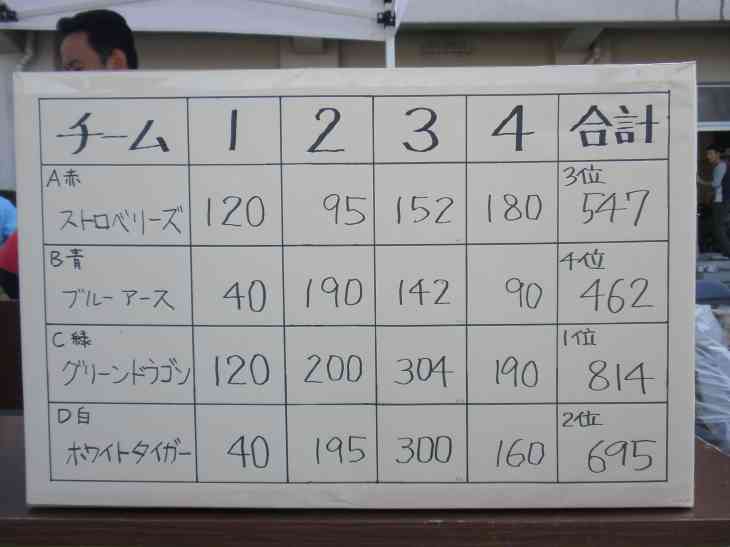 チーム 1 2 3 4 合計
A赤 3位
ストロベリーズ 120 95 152 180 547
B青 4位
ブルーアース 40 190 142 90 462
C緑 1位
グリーンドラゴン 120 200 304 190 814
D白 2位
ホワイトタイガー 40 195 300 160 695